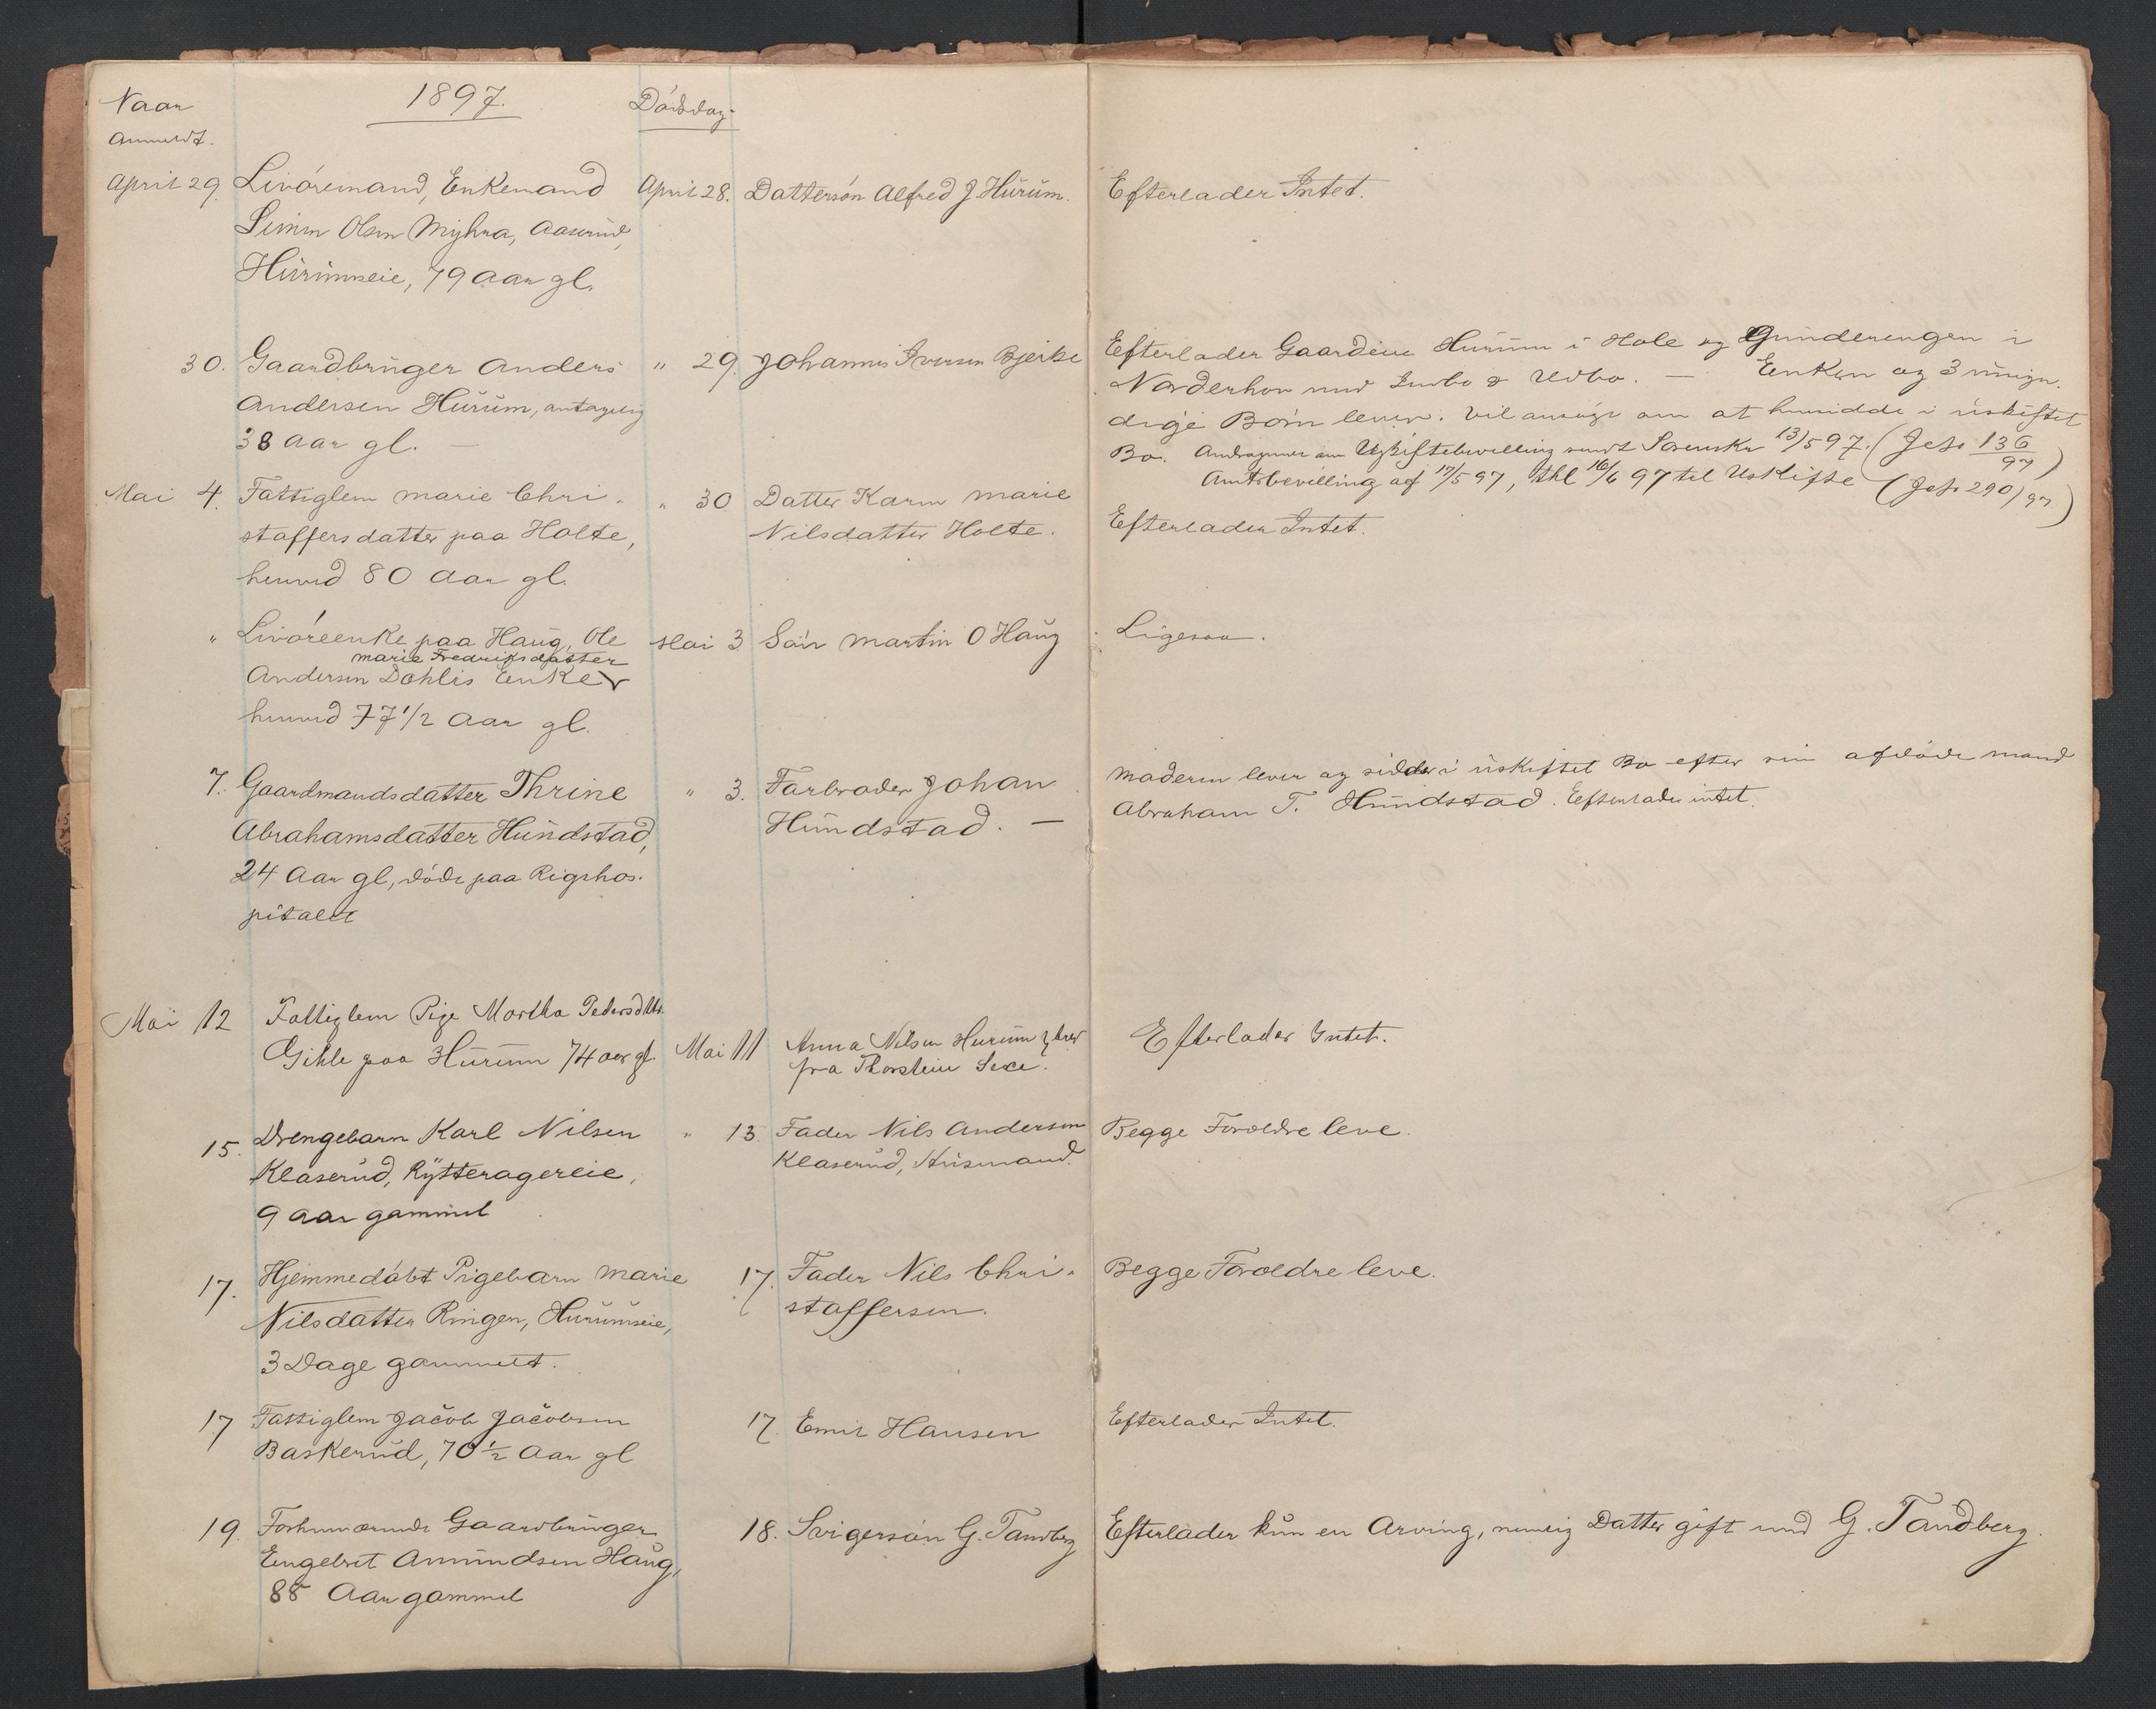 Naar
anmeldt.
1897.
Dödsdag.
April 29. Livöremand, Enkemand
Simen Olsen Myhra, Aaserud,
Hurumseie, 79 Aar gl.
April 28. Dattersön Alfred J Hurum.
Efterlader Intet.
30. Gaardbruger Anders
Andersen Hurum, antagelig
38 Aar gl. —
" 29. Johannes Iversen Bjerke
Efterlader Gaardene Hurum i Hole og Gunderengen i
Norderhov med Indbo & Udbo. — Enken og 3 umyn-
dige Börn lever. Vil ansöge om at hensidde i uskiftet
Bo. Andragende om Uskiftebevilling sendt Sorenskr 13/5 97. (Jeho 136/97)
Amtsbevilling af 17/5 97, thl 16/6 97 til Uskifte (Jeho 290/97)
Mai 4. Fattiglem Marie Chri-
stoffersdatter paa Holte,
henved 80 Aar gl.
" 30 Datter Karen Marie
Nilsdatter Holte.
Efterlader Intet.
" Livöreenke paa Haug, Ole
Marie Fredriksdatter
Andersen Döhlis Enke
henved 77 1/2 Aar gl.
Mai 3 Sön Martin O Haug
Ligesaa.
7. Gaardmandsdatter Thrine
Abrahamsdatter Hundstad,
24 Aar gl, döde paa Rigshos-
pitalet
" 3. Farbroder Johan
Hundstad. —
Moderen lever og sidder i uskiftet Bo efter sin afdöde Mand
Abraham T. Hundstad. Efterlader intet.
Mai 12 Fattiglem Pige Martha Pedersdtt.
Gihle paa Hurum 74 aar gl.
Mai 11 Anna Nilsen Hurum
fra Thorstein Sexe.
Efterlader Intet.
15. Drengebarn Karl Nilsen
Klaserud, Rytteragereie,
9 Aar gammel
" 13. Fader Nils Andersen
Klaserud, Husmand.
Begge Forældre leve.
17. Hjemmedöbt Pigebarn Marie
Nilsdatter Ringen, Hurumseie,
3 Dage gammelt.
17. Fader Nils Chri-
stoffersen.
Begge Forældre leve.
17 Fattiglem Jacob Jacobsen
Baskerud, 70 1/2 Aar gl
17. Emil Hansen
Efterlader Intet.
19. Forhenværende Gaardbruger
Engebret Amundsen Haug,
88 Aar gammel
18. Svigersön G. Tandberg
Efterlader kun en Arving, nemlig Datter gift med G. Tandberg.